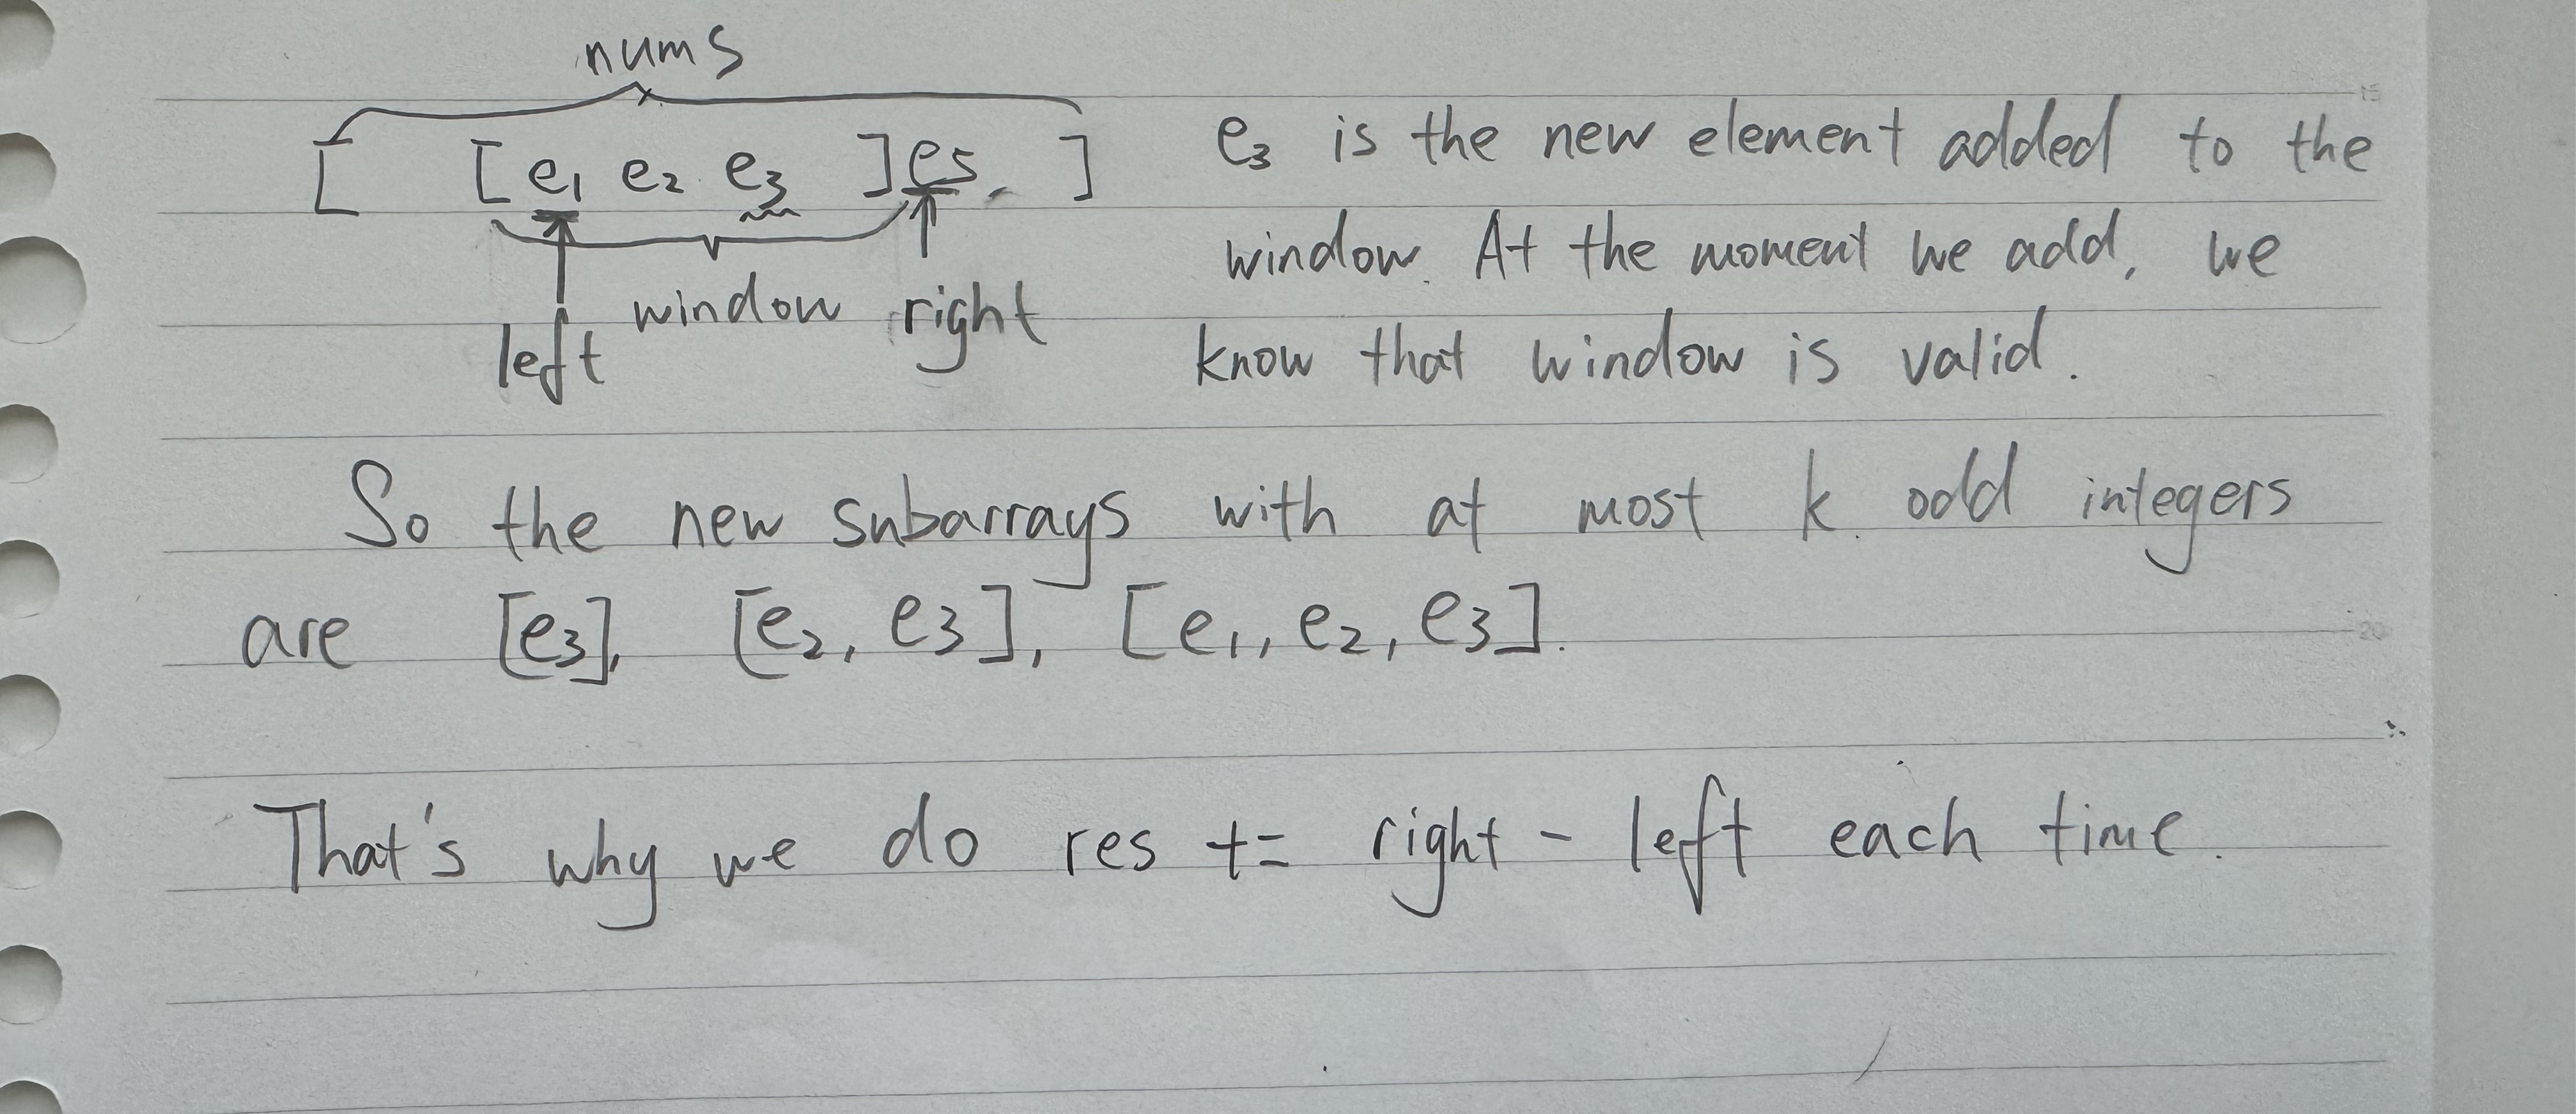 nums
[ [e₁ e₂ e₃ ] e5, ]
window right
left
e₃ is the new element added to the
window. At the moment we add, we
know that window is valid.
So the new subarrays with at most k odd integers
are [e₃], [e₂, e₃], [e₁, e₂, e₃].
That's why we do res += right - left each time.
15
20